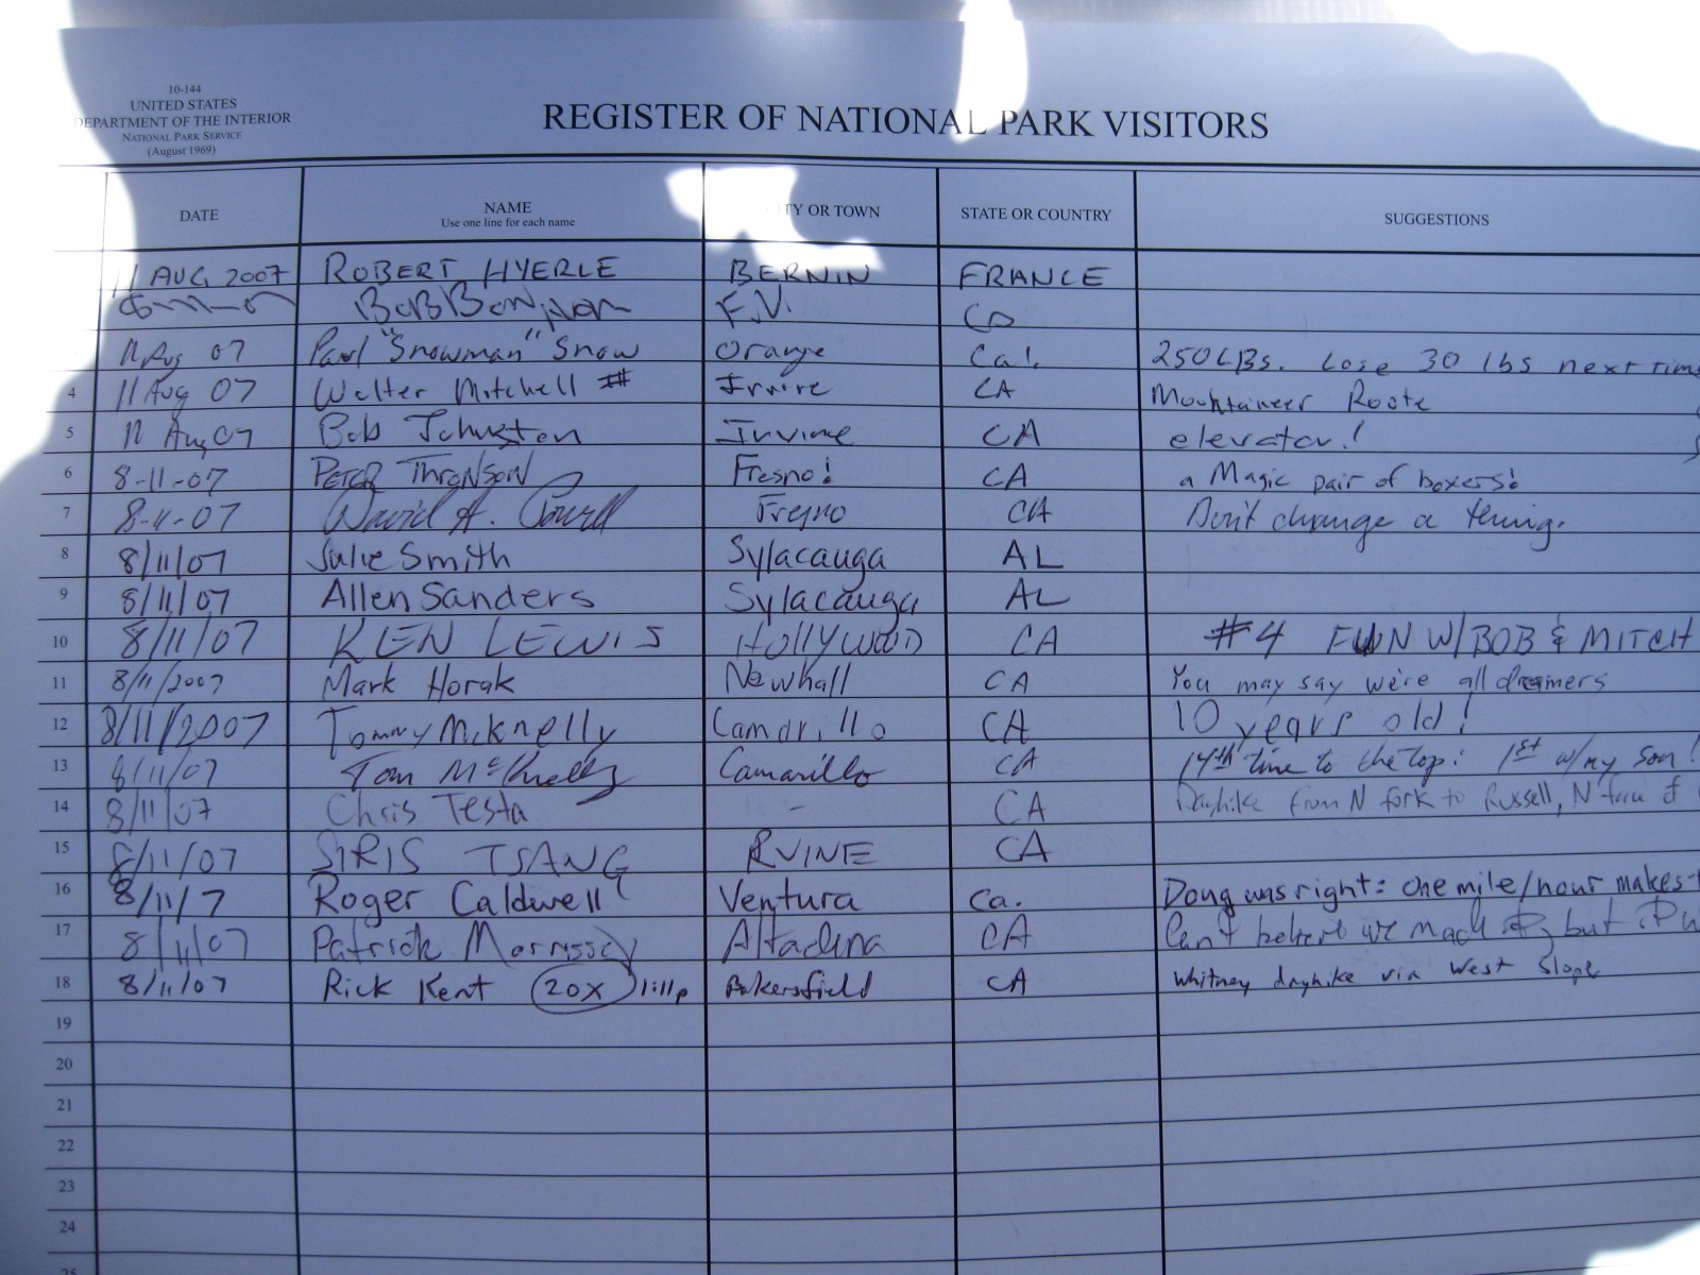 10-144
UNITED STATES
DEPARTMENT OF THE INTERIOR
NATIONAL PARK SERVICE
(August 1969)
REGISTER OF NATIONAL PARK VISITORS
DATE NAME TY OR TOWN STATE OR COUNTRY SUGGESTIONS
Use one line for each name
11 AUG 2007 ROBERT HYERLE BERNIN FRANCE
BOB F.V. CO
11 Aug 07 Paul "Snowman" Snow Orange Cal. 250 LBS. Lose 30 lbs next time
4 11 Aug 07 Walter Mitchell # Irvine CA Mountaineer Route
5 11 Aug 07 Bob Johnston Irvine CA elevator!
6 8-11-07 PETER THRONSON Fresno! CA a Magic pair of boxers!
7 8-11-07 David A. Fresno CA Don't change a thing.
8 8/11/07 Julie Smith Sylacauga AL
9 8/11/07 Allen Sanders Sylacauga AL
10 8/11/07 KEN LEWIS HOLLYWOOD CA #4 FUN W/BOB & MITCH
11 8/11/2007 Mark Horak Newhall CA You may say we're all dreamers
12 8/11/2007 Tommy McKnelly Camarillo CA 10 years old!
13 8/11/07 Tom McKnelly Camarillo CA 14th time to the top! 1st w/my son!
14 8/11/07 Chris Testa - CA Dayhike from N fork to Russell, N face of
15 8/11/07 SIRIS TSANG RVINE CA
16 8/11/7 Roger Caldwell Ventura Ca. Doug was right: one mile/hour makes
17 8/11/07 Patrick Morrissey Altadena CA Can't believe we made it, but
18 8/11/07 Rick Kent 20X 1:11p Bakersfield CA Whitney dayhike via West Slope
19
20
21
22
23
24
25